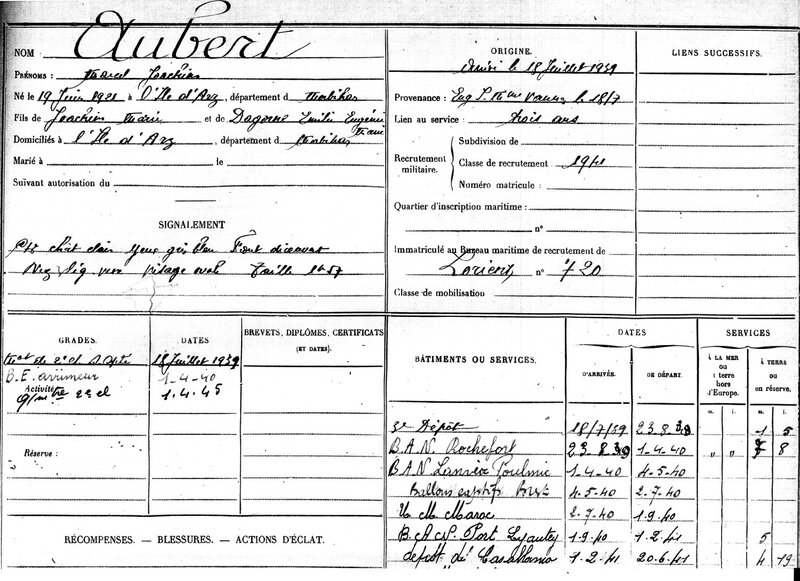 NOM Aubert
PRÉNOMS: Marcel Joachim
Né le 19 Juin 1921 à l'Ile d'Arz, département d Morbihan
Fils de Joachim Marie et de Dagorne Emilie Eugénie Marie
Domiciliés à l'Ile d'Arz, département d Morbihan
Marié à le
Suivant autorisation du
SIGNALEMENT
chât clair yeux gris bleu Front découvert
Nez visage ovale Taille 1m57
ORIGINE.
le 18 Juillet 1939
Provenance: Eng. Vannes le 18/7
Lien au service: trois ans
Recrutement militaire.
Subdivision de
Classe de recrutement 1941
Numéro matricule:
Quartier d'inscription maritime:
n°
Immatriculé au Bureau maritime de recrutement de
Lorient, n° 720
Classe de mobilisation
LIENS SUCCESSIFS.
GRADES. DATES
Mot de 2e cl 18 Juillet 1939
B.E. arrimeur 1-4-40
Activité
2e cl 1.4.45
Réserve:
BREVETS, DIPLÔMES, CERTIFICATS
(ET DATES).
RÉCOMPENSES. — BLESSURES. — ACTIONS D'ÉCLAT.
BÂTIMENTS OU SERVICES.
DATES
D'ARRIVÉE. DE DÉPART.
SERVICES
À LA MER ou à terre hors d'Europe.
À TERRE ou en réserve.
m. j. m. j.
3e Dépôt 18/7/39 23.8.39 1 5
B.A.N. Rochefort 23.8.39 1-4-40 " " 7 8
B.A.N. Lanvéoc Poulmic 1-4-40 4-5-40
Ballons captifs Brest 4-5-40 2-7-40
U. M. Maroc 2-7-40 1.9.40
B.A.N. Port Lyautey 1.9.40 1.2.41 5
dépôt de Casablanca 1.2.41 20.6.41 4 19